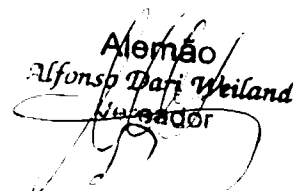 Alemão
Alfonso Dari Weiland
Vereador